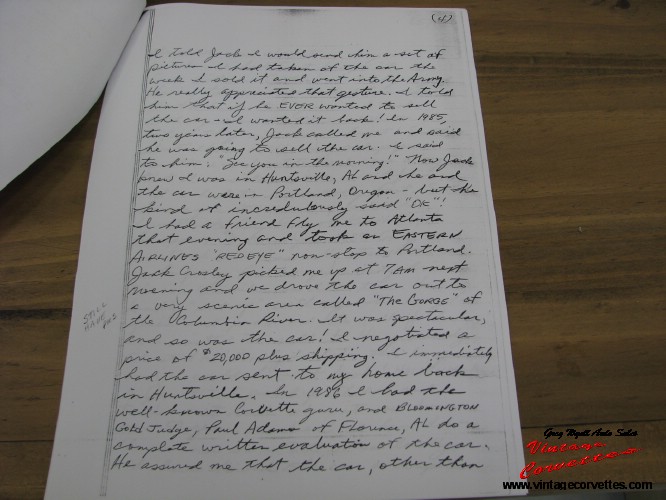 (4)
I told Jack I would send him a set of
pictures I had taken of the car the
week I sold it and went into the Army.
He really appreciated that gesture. I told
him that if he EVER wanted to sell
the car - I wanted it back! In 1985,
two years later, Jack called me and said
he was going to sell the car. I said
to him, "See you in the morning!" Now Jack
knew I was in Huntsville, AL and he and
the car were in Portland, Oregon - but he
kind of incredulously said "OK"!
I had a friend fly me to Atlanta
that evening and took an EASTERN
AIRLINES "REDEYE" non-stop to Portland.
Jack Crosley picked me up at 7AM next
morning and we drove the car out to
a very scenic area called "THE GORGE" of
the Columbia River. It was spectacular,
and so was the car! I negotiated a
price of $20,000 plus shipping. I immediately
had the car sent to my home back
in Huntsville. In 1986 I had the
well-known Corvette guru, and BLOOMINGTON
Gold Judge, Paul Adams of Florence, AL do a
complete written evaluation of the car.
He assured me that the car, other than
STILL
HAVE
Greg Wyatt Auto Sales
Vintage
Corvettes
www.vintagecorvettes.com